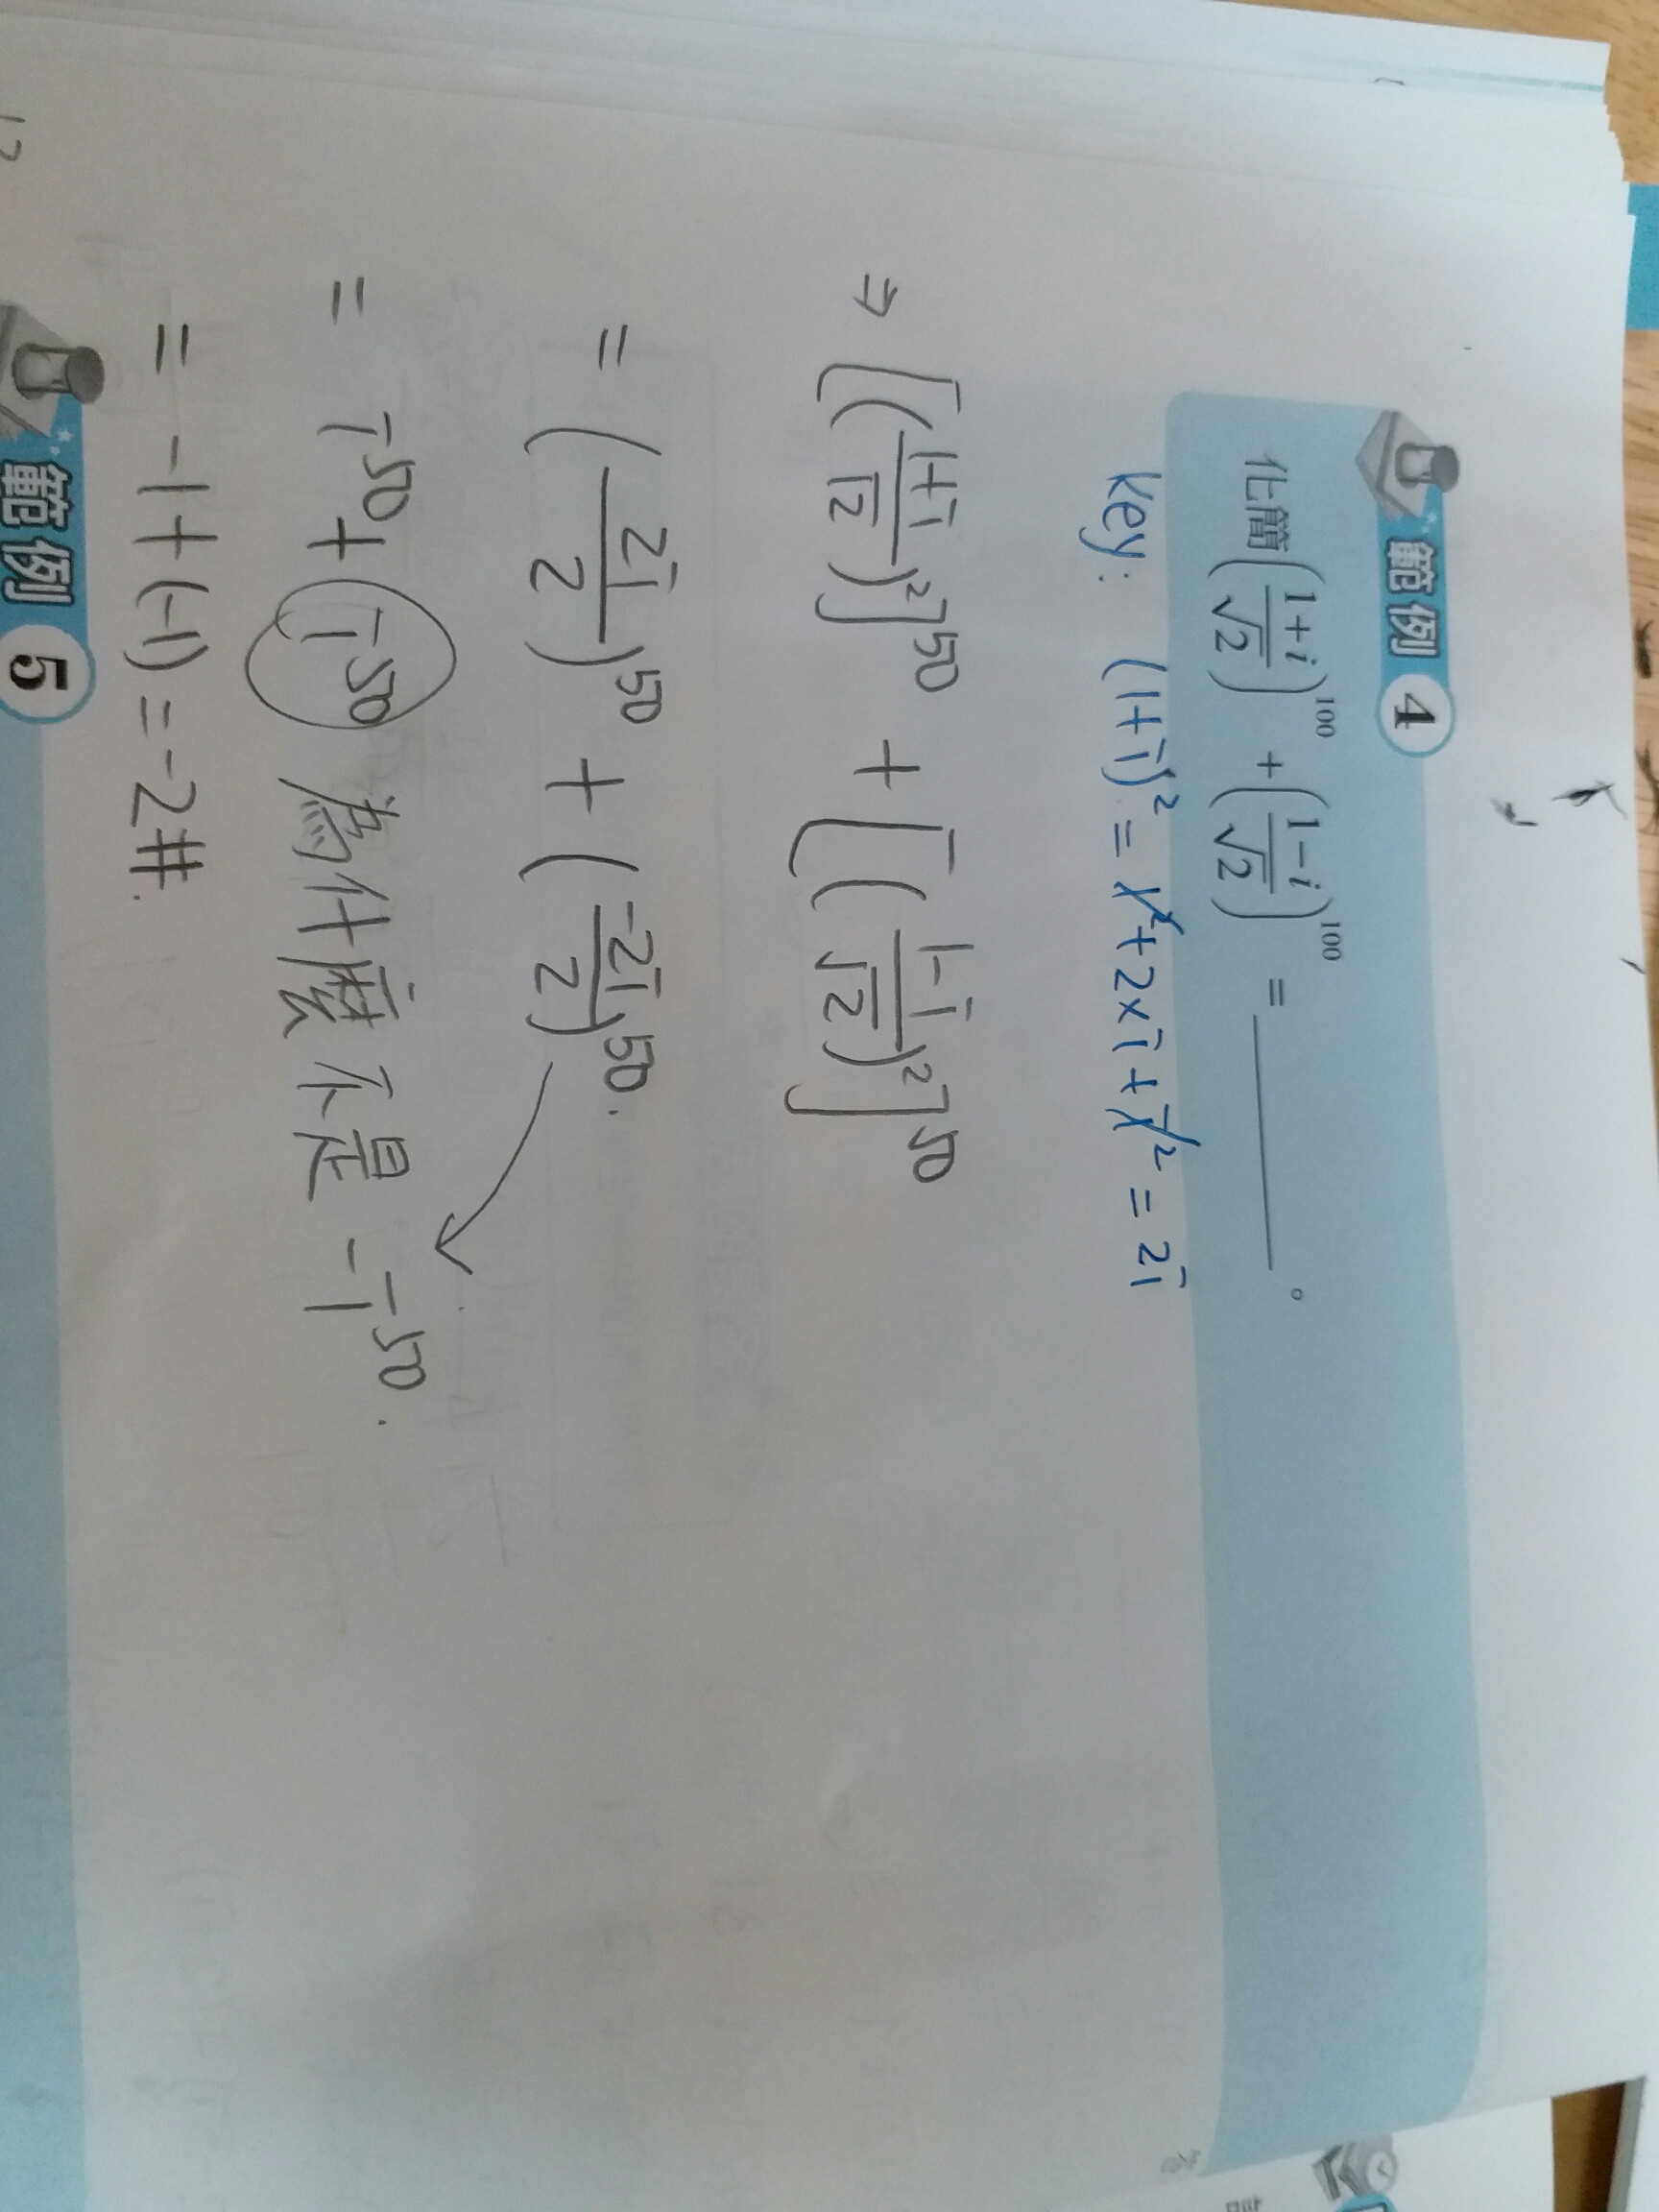 範例 4
化簡 (1+i/√2)^100 + (1−i/√2)^100 = ________。
key: (1+i)² = 1²+2×i+i² = 2i
⇒ [(1+i/√2)²]^50 + [(1-i/√2)²]^50
= (2i/2)^50 + (-2i/2)^50.
= i^50 + i^50 為什麼不是 -i^50.
= -1+(-1) = -2#.
範例 5